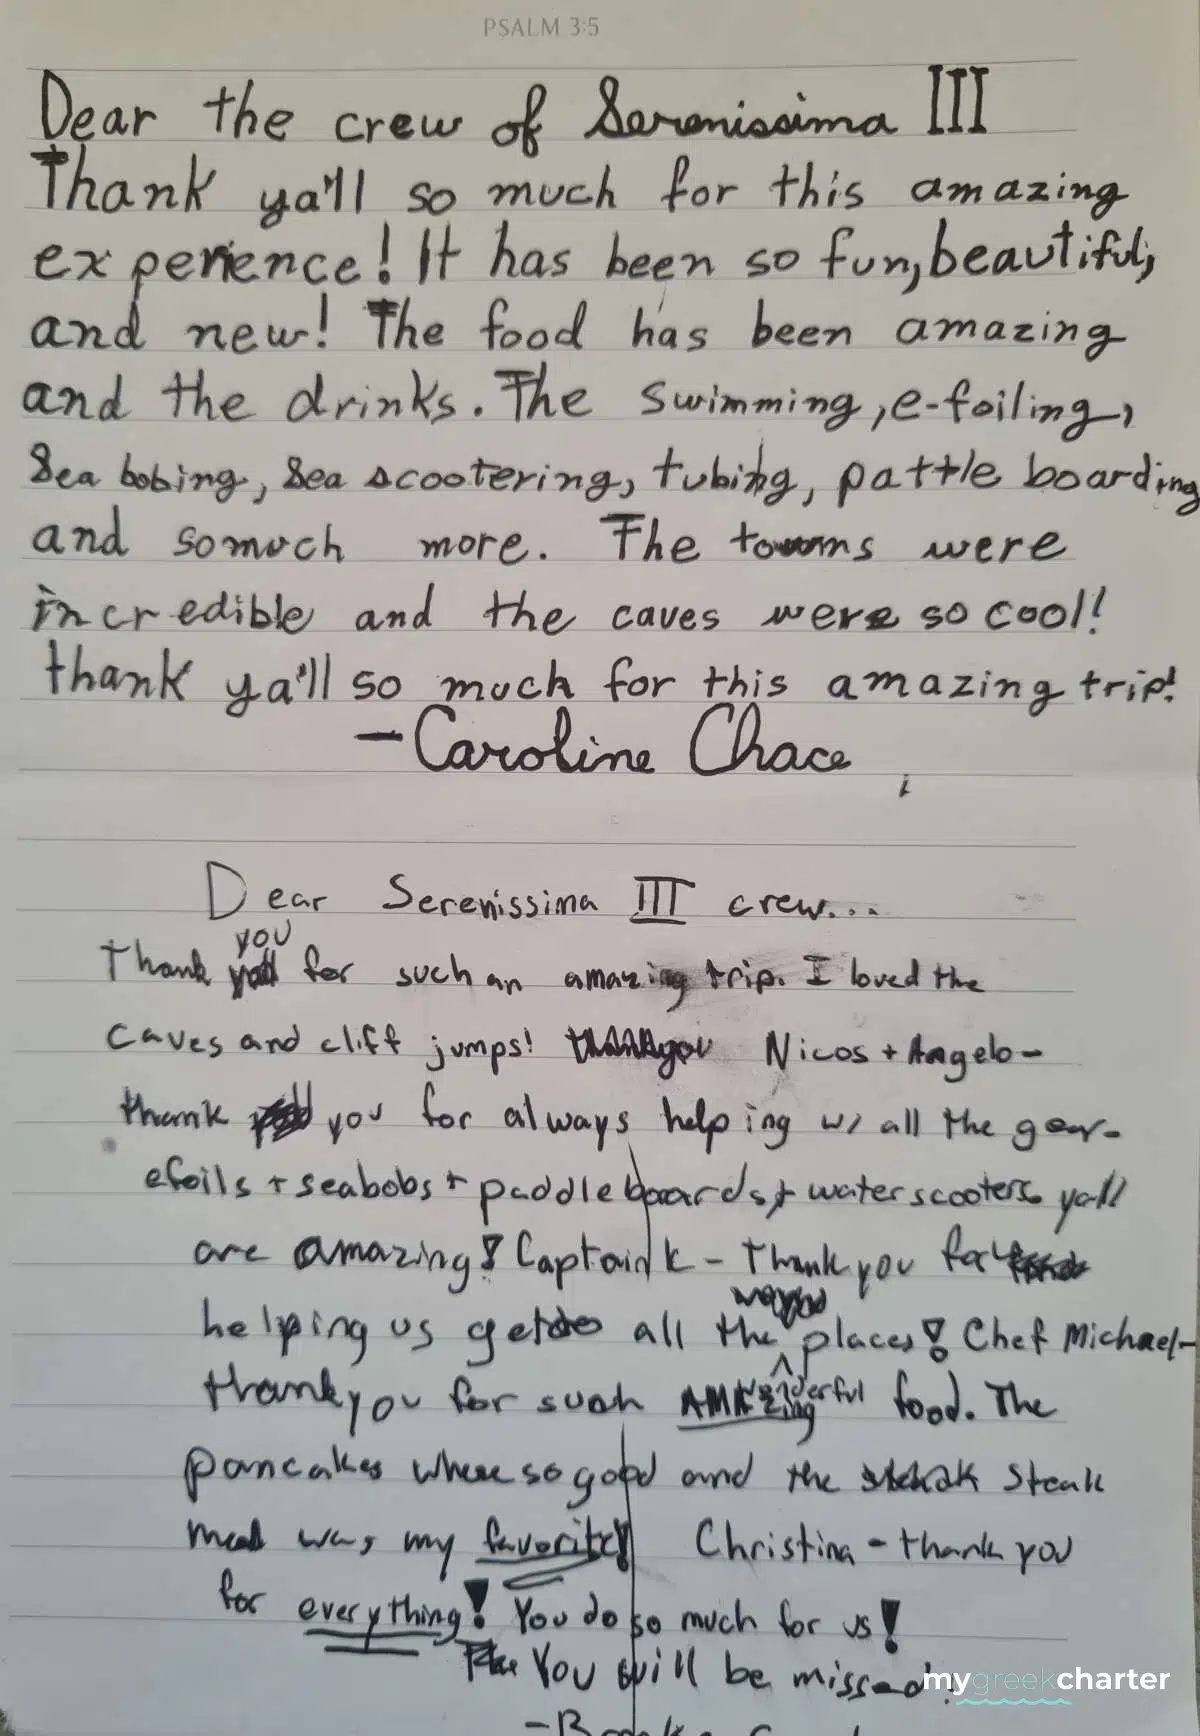 PSALM 3:5
Dear the crew of Serenissima III
Thank ya'll so much for this amazing
experience! It has been so fun, beautiful,
and new! The food has been amazing
and the drinks. The swimming, e-foiling,
Sea bobing, Sea scootering, tubing, pattle boarding
and somuch more. The towns were
incredible and the caves were so cool!
thank ya'll so much for this amazing trip!
- Caroline Chace
Dear Serenissima III crew...
Thank you for such an amazing trip. I loved the
caves and cliff jumps! Nicos + Angelo-
thank you for always helping w/ all the gear-
efoils + seabobs + paddleboards + water scooters yall
are amazing! Captain K - Thank you for
helping us get to all the places! Chef Michael-
thank you for such AMAzing wonderful food. The
pancakes where so good and the steak
meal was my favorite! Christina - thank you
for everything! You do so much for us!
You will be missed!
mygreekcharter